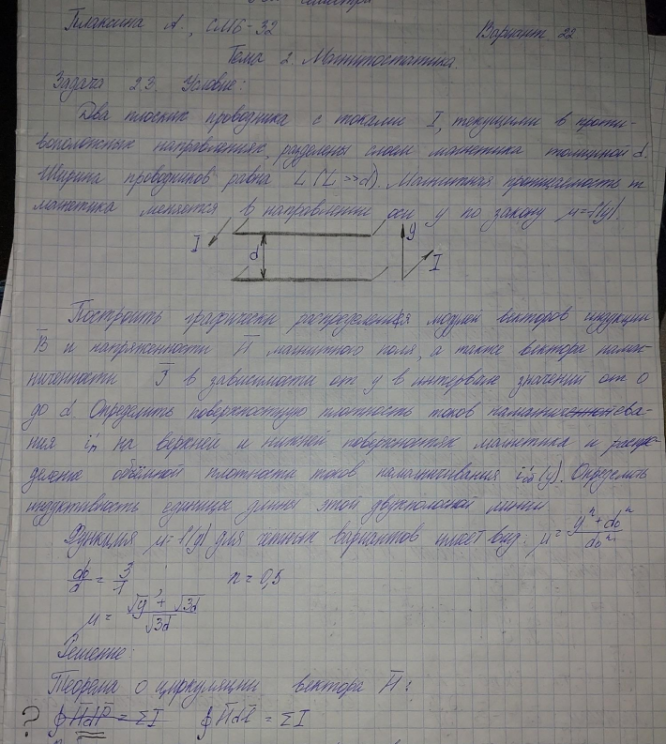 Плаксина А., СМБ-32 Вариант 22
Тема 2 Магнитостатика
Задача 2.3. Условие:
Два плоских проводника с токами I, текущими в проти-
воположных направлениях, разделены слоем магнетика толщиной d.
Ширина проводников равна L (L >> d). Магнитная проницаемость m
магнетика меняется в направлении оси y по закону μ=f(y).
I d y I
Построить графически распределения модулей векторов индукции
B̄ и напряженности H̄ магнитного поля, а также вектора намаг-
ниченности J̄ в зависимости от y в интервале значений от 0
до d. Определить поверхностную плотность токов намагничива-
ния i'п на верхней и нижней поверхностях магнетика и распре-
деление объёмной плотности токов намагничивания i'об (y). Определить
индуктивность единицы длины этой двухполосной линии.
Функция μ=f(y) для чётных вариантов имеет вид: μ = (yⁿ + d₀ⁿ)/d₀ⁿ
d₀/d = 3/1 ; n = 0,5
μ = (√y + √3d)/√3d
Решение:
Теорема о циркуляции вектора H̄:
? ∮ H̄dl̄ = ΣI ∮ H̄dl̄ = ΣI